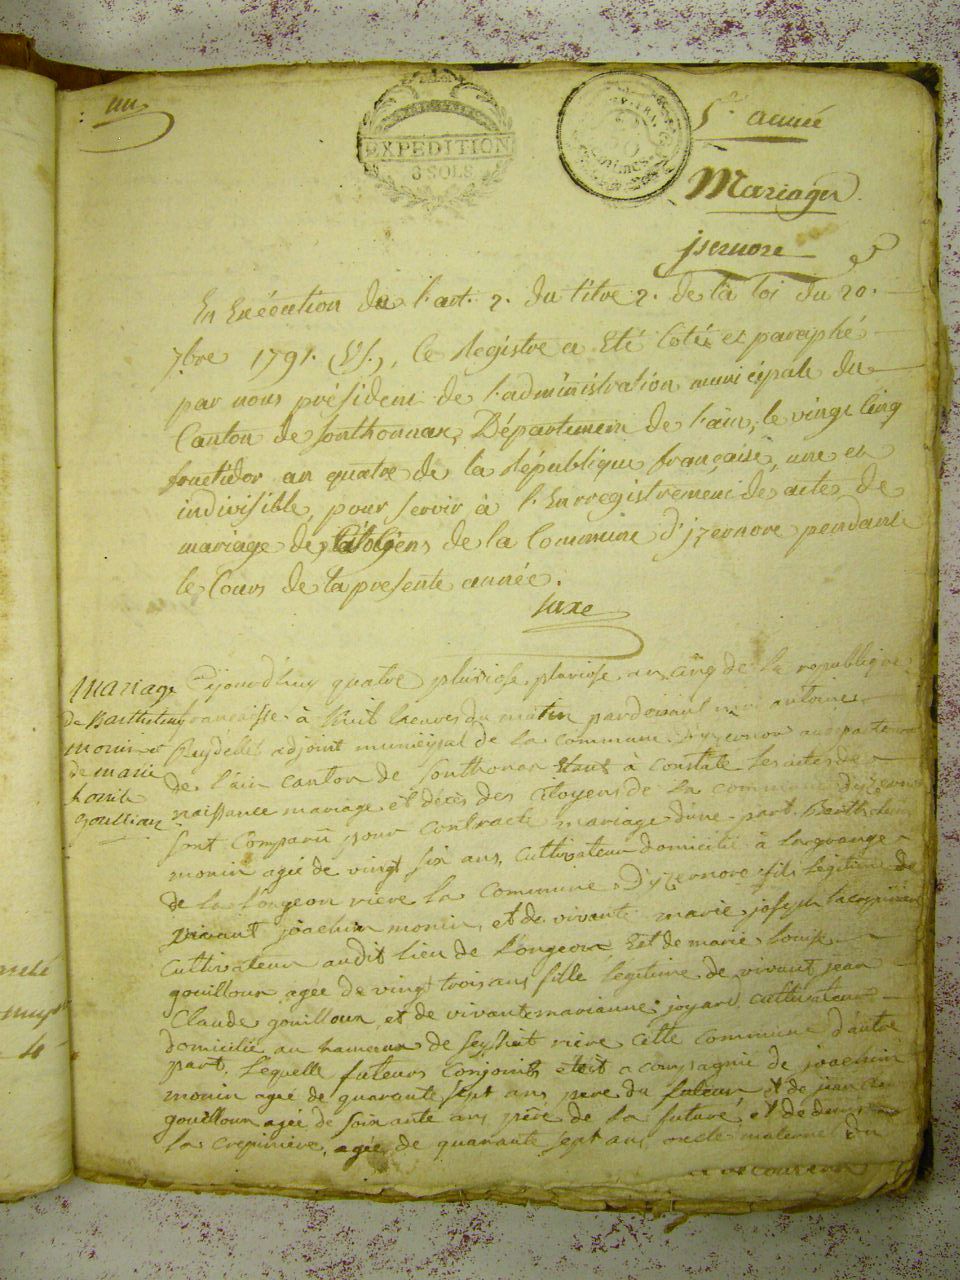 un
EXPEDITION
8 SOLS
5e année
Mariages
jsernore
En Exécution du l'art. 2. du titre 2. de la loi du 20.
7bre 1791. (V.S.), Ce Registre a Eté Coté et paraphé
par nous président de l'administration municipale du
Canton de Sonthonnax, Département de l'ain, le vingt Cinq
fructidor an quatre de la République française, une et
indivisible, pour servir à l'Enregistrement des actes de
mariage des Citoyens de la Commune d'jzernore pendant
le Cours de la presente année.
Mariage
de Barthelemy
monin et
de marie
Louise
gouilloux
Cejourd'huy quatre pluviose pluviose an cinq de la republique
francaisse à huit heures du matin pardevant moi antoine
adjoint municipal de la commune d'yzernor
de l'ain canton de Sonthonax Etant à constate les actes de
naissance mariage et décès des Citoyens de la commune d'yzernor
sont comparu pour contracte mariage d'une part Barthelemi
monin agé de vingt six ans, cultivateur domicilié à la grange
de la Longeon riere la Commune d'yzernore fils légitime de
vivant joachim monin, et de vivante marie joseph
Cultivateur audit lieu de Longeon, Et de marie Louise
gouilloux agée de vingt trois ans fille legitime de vivant jean
Claude gouilloux et de vivante marianne joyard cultivateur
domicilié au hameaux de riere cette commune d'autre
part. Lequelle futeurs Conjoints etoit a compagnié de joachim
monin agé de quarante sept ans pere du futeur, et de jean Cl
gouilloux agée de soixante ans père de la future, et de
la crepinière, agée de quarante sept ans oncle maternel du